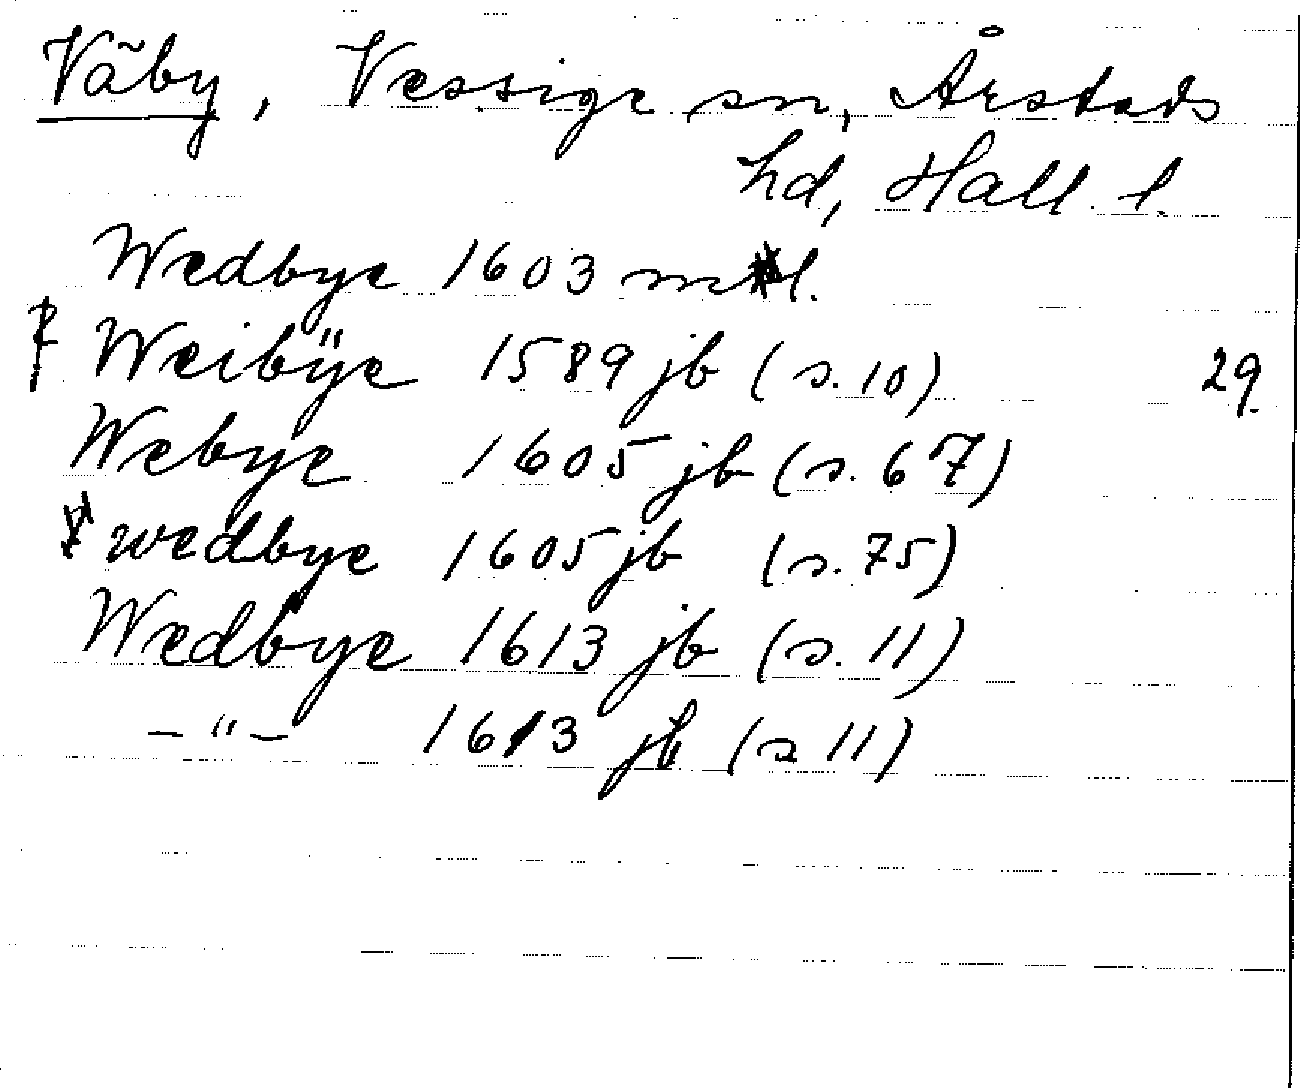 Väby, Vessige sn, Årstads
hd, Hall. l.
Wedbye 1603 mtl.
Weibÿe 1589 jb (s. 10) 29.
Webye 1605 jb (s. 67)
wedbye 1605 jb (s. 75)
Wedbye 1613 jb (s. 11)
— " — 1613 jb (s 11)